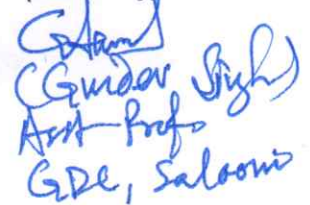 (Gurdev Singh)
Asst Prof.
GDC, Salooni